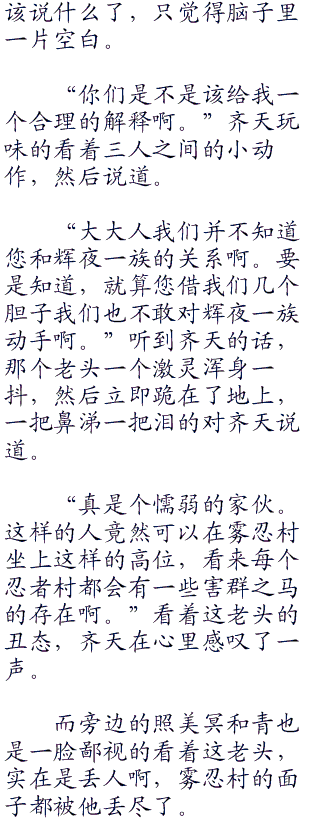 该说什么了，只觉得脑子里
一片空白。
“你们是不是该给我一
个合理的解释啊。”齐天玩
味的看着三人之间的小动
作，然后说道。
“大大人我们并不知道
您和辉夜一族的关系啊。要
是知道，就算您借我们几个
胆子我们也不敢对辉夜一族
动手啊。”听到齐天的话，
那个老头一个激灵浑身一
抖，然后立即跪在了地上，
一把鼻涕一把泪的对齐天说
道。
“真是个懦弱的家伙。
这样的人竟然可以在雾忍村
坐上这样的高位，看来每个
忍者村都会有一些害群之马
的存在啊。”看着这老头的
丑态，齐天在心里感叹了一
声。
而旁边的照美冥和青也
是一脸鄙视的看着这老头，
实在是丢人啊，雾忍村的面
子都被他丢尽了。